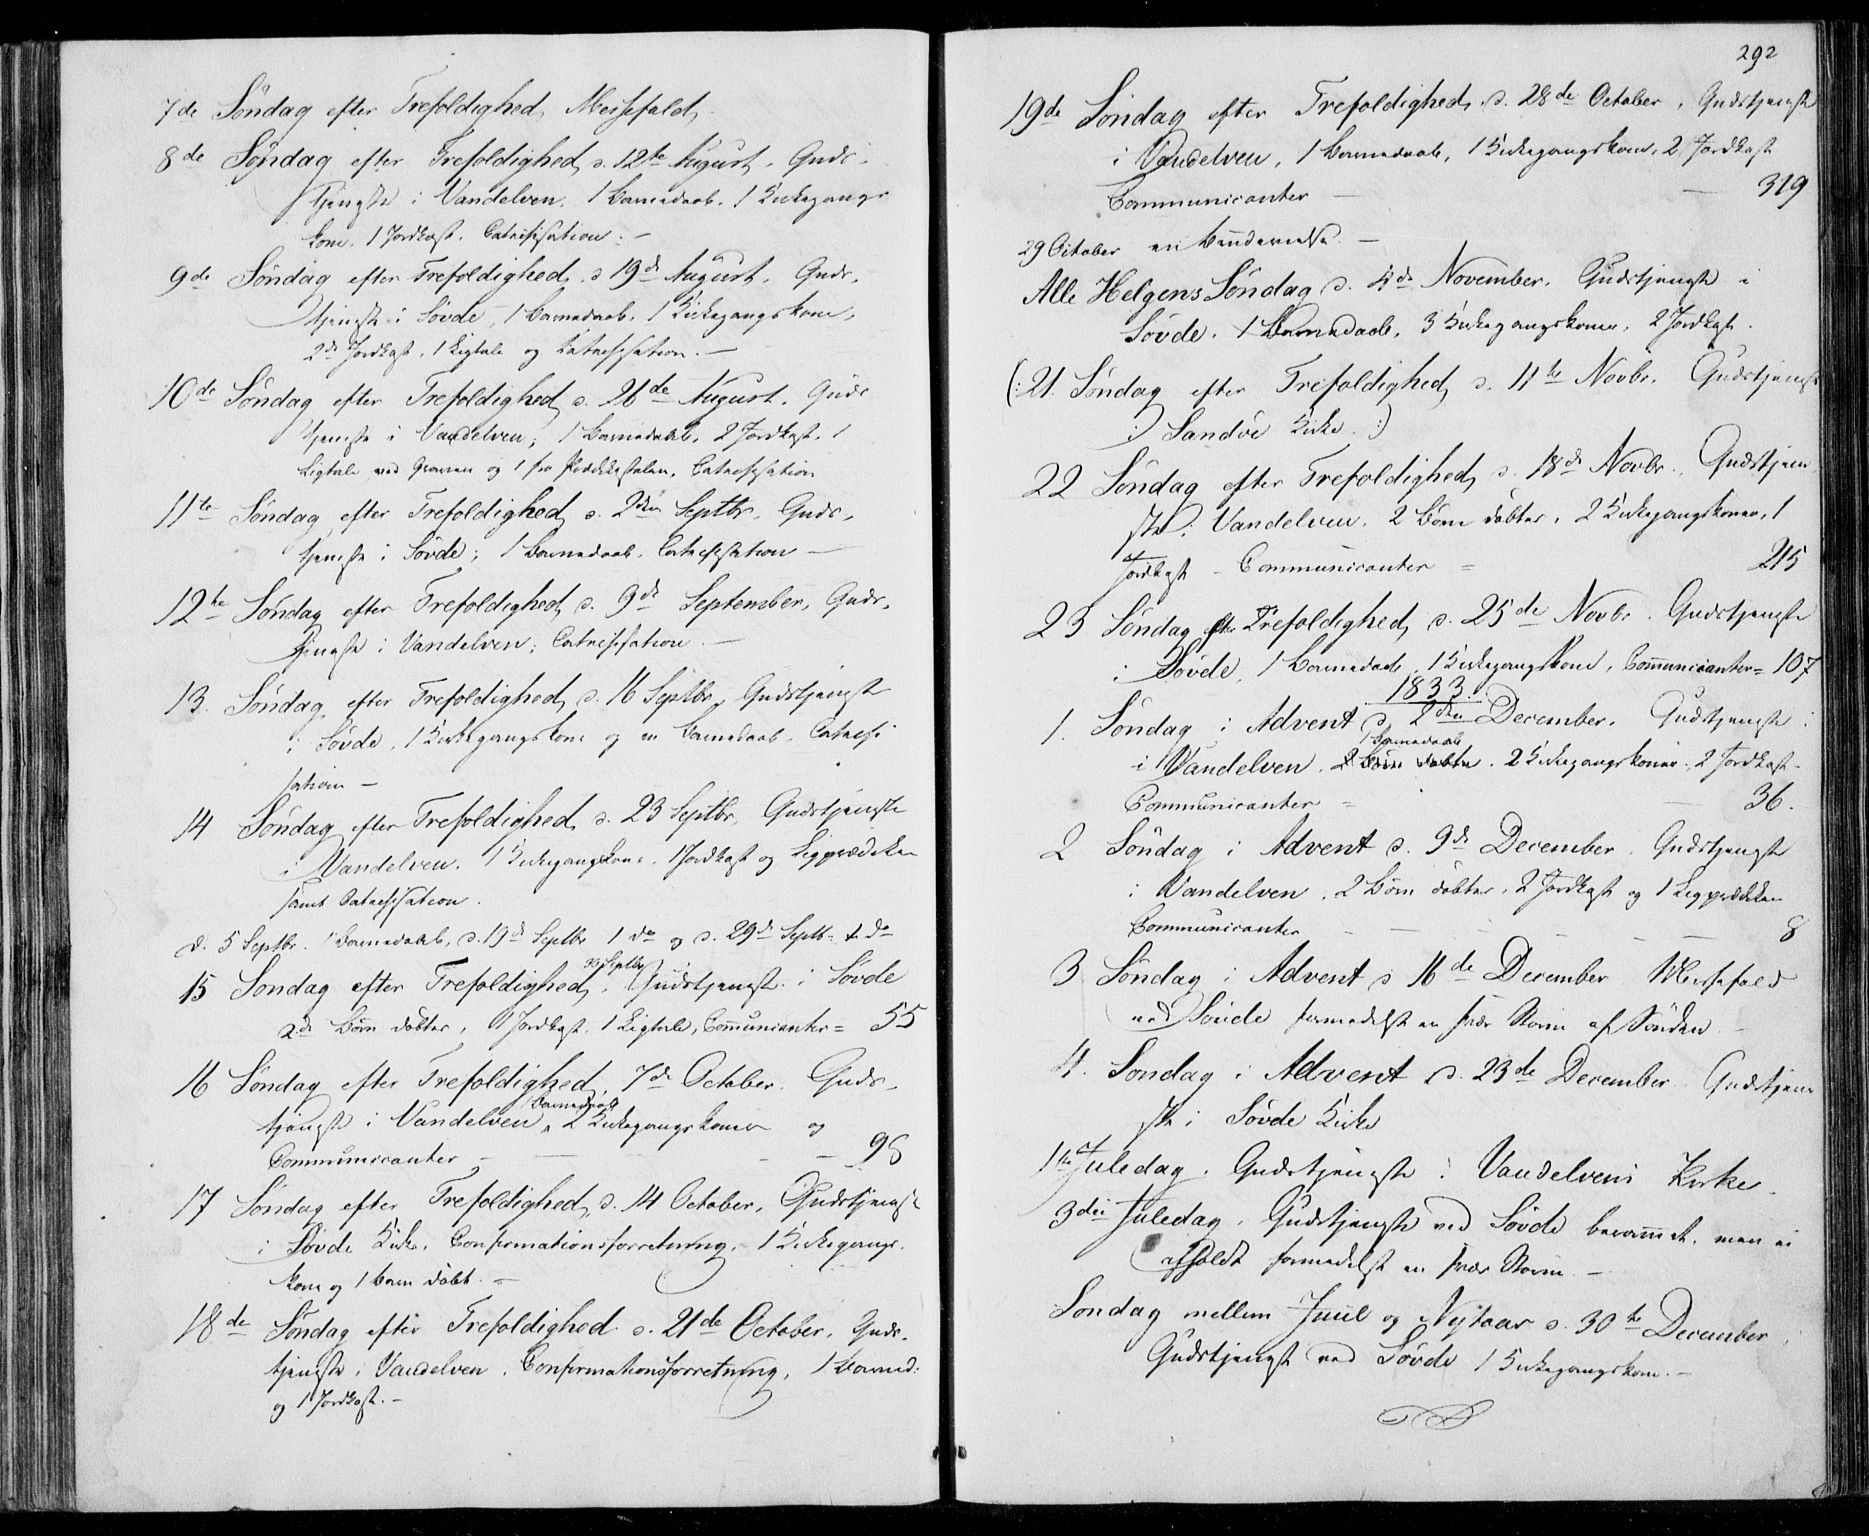 7de Søndag efter Trefoldighed, Messefald,
8de Søndag efter Trefoldighed d. 12te August, Guds-
tjeneste i Vandelven, 1 Barnedaab, 1 Kirkegangs
kone, 1 Jordkast, Catechisation. –
9de Søndag efter Trefoldighed d 19de August, Guds-
tjeneste i Søvde, 1 Barnedaab, 1 Kirkegangskone,
2de Jordkast, 1 Ligtale og Catechisation. –
10de Søndag efter Trefoldighed d. 26de August. Guds
tjeneste i Vandelven; 1 Barnedaab, 2 Jordkast, 1
Ligtale ved Graven og 1 fra Prædikestolen, Catechisation
11te Søndag efter Trefoldighed d. 2den Septbr, Guds-
tjeneste i Søvde; 1 Barnedaab, Catechisation –
12te Søndag efter Trefoldighed d. 9de September, Guds-
tjeneste i Vandelven; Catechisation. –
13. Søndag efter Trefoldighed d. 16 Septbr, Gudstjeneste
i Søvde, 1 Kirkegangskone og en Barnedaab. Catechi
sation –
14 Søndag efter Trefoldighed d. 23 Septbr, Gudstjeneste
i Vandelven. 1 Kirkegangskone, 1 Jordkast og Ligprædiken
samt Catechisation.
d. 5 Septbr. 1 Barnedaab, d. 19de Septbr 1 do og d. 29de Septb. 1 do
30 Septbr
15 Søndag efter Trefoldighed, Gudstjeneste i Søvde
2de Børn døbte, 1 Jordkast, 1 Ligtale, Communicanter = 55
16 Søndag efter Trefoldighed, 7de October. Guds-
Barnedaab
tjeneste i Vandelven, 2 Kirkegangskoner og
Communicanter – – – – 98
17 Søndag efter Trefoldighed, d. 14 October, Gudstjenest
i Søvde Kirke, Confirmationsforretning, 1 Kirkegangs-
kone og 1 Barn døbt. –
18de Søndag efter Trefoldighed d. 21de October, Guds-
tjeneste i Vandelven, Confirmationsforretning, 1 Barned:
og 1 Jordkast. –
292
19de Søndag efter Trefoldighed, d. 28de October, Gudstjeneste
i Vandelven, 1 Barnedaab, 1 Kirkegangskone, 2 Jordkast
Communicanter – – 319
29 October en Bøndervielse. –
Alle Helgens Søndag d. 4de November. Gudstjeneste i
Søvde. 1 Barnedaab, 3 Kirkegangskoner, 2 Jordkast.
(: 21. Søndag efter Trefoldighed, d. 11te Novbr. Gudstjenest
i Sandöe Kirke. :)
22 Søndag efter Trefoldighed, d. 18de Novbr., Gudstjene
ste i Vandelven. 2 Børn døbte, 2 Kirkegangskoner, 1
Jordkast – Communicanter = 215
23 Søndag efter Trefoldighed, d. 25de Novbr. Gudstjeneste
i Søvde, 1 Barnedaab, 1 Kirkegangskone, Communicanter = 107
1833.
1. Søndag i Advent d. 2den December. Gudstjeneste
1 Barnedaab
i Vandelven, 2 Børn døbte. 2 Kirkegangskoner, 2 Jordkast –
Communicanter = – 36.
2 Søndag i Advent d. 9de December. Gudstjeneste
i Vandelven, 2 Børn døbte, 2 Jordkast og 1 Ligprædiken
Communicanter – – – – – 8
3 Søndag i Advent d 16de December Messefald
ved Søvde formedelst en svær Storm af Sönden –
4. Søndag i Advent d. 23de December Gudstjene
ste i Søvde Kirke
1ste Juledag, Gudstjeneste i Vandelvens Kirke.
3die Juledag, Gudstjeneste ved Søvde berammet, men ei
afholdt formedelst en svær Storm. –
Søndag mellem Juul og Nytaar d. 30te December
Gudstjeneste ved Søvde 1 Kirkegangskone. –